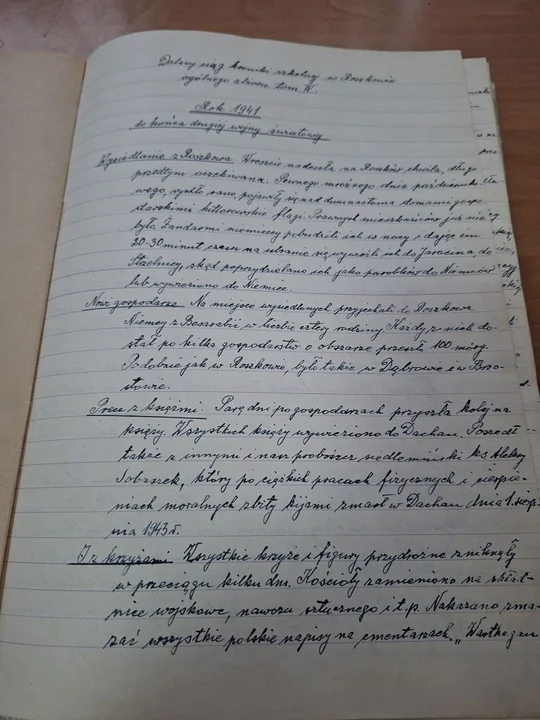 Dalszy ciąg kroniki szkolnej w Roszkowie
ogólnego zbioru tom IV.
Rok 1941
do końca drugiej wojny światowej
Wysiedlanie z Roszkowa. Wreszcie nadeszła na Polaków chwila, długo
przedtym oczekiwana. Pewnego mroźnego dnia października
wego, rychło rano, pojawiły się nad dwunastoma domami gospo-
darskimi hitlerowskie flagi. Prawych mieszkańców już nie
było. Żandarmi niemieccy pobudzili ich w nocy i dając im
20-30 minut czasu na ubranie się, wywieźli ich do Jarocina, do
Strzelnicy, skąd poprzydzielano ich jako parobków do Niemców
lub wywieziono do Niemiec.
Nowi gospodarze. Na miejsce wysiedlonych przyjechali do Roszkowa
Niemcy z Besarabii w liczbie cztery rodziny. Każdy z nich do-
stał po kilka gospodarstw o obszarze przeszło 100 mórg.
Podobnie jak w Roszkowie, było także w Dąbrowie i w Brzo-
stowie.
Precz z księżmi. Parę dni po gospodarzach przyszła kolej na
księży. Wszystkich księży wywieziono do Dachau. Poszedł
także z innymi i nasz proboszcz siedlemiński ks. Aleksy
Sobaszek, który po ciężkich pracach fizycznych i cierpie-
niach moralnych zbity kijami zmarł w Dachau dnia 1. sierp-
nia 1943 r.
I z krzyżami. Wszystkie krzyże i figury przydrożne zniknęły
w przeciągu kilku dni. Kościoły zamieniono na zbior-
nice wojskowe, nawozu sztucznego i t.p. Nakazano zma-
zać wszystkie polskie napisy na cmentarzach. „Warthegau